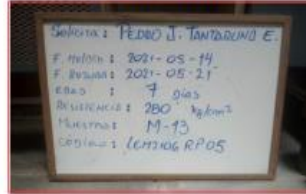 Solicita: PEDRO J. TANTARUNA E.
F. MOLDEO: 2021-05-14
F. ROTURA: 2021-05-21
EDAD: 7 días
RESISTENCIA: 280 kg/cm²
MUESTRA: M-13
CODIGO: LEM2106RP05